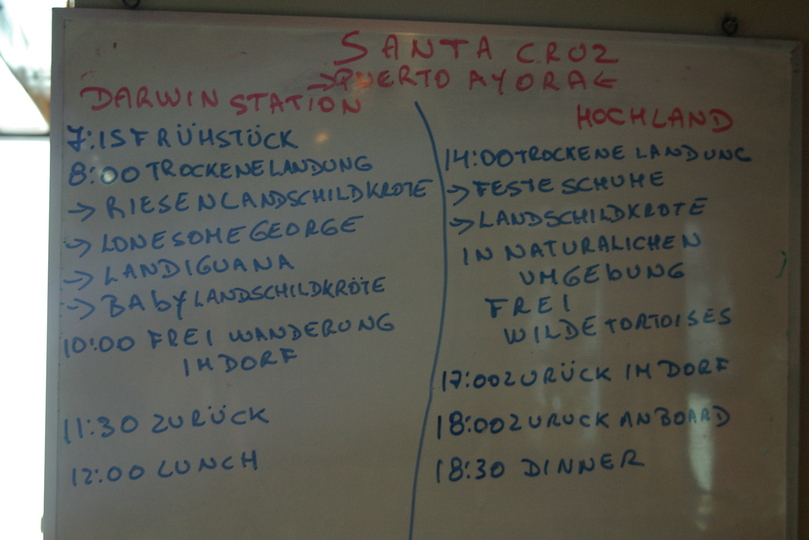 SANTA CRUZ
→PUERTO AYORA←
DARWIN STATION
7:15 FRÜHSTÜCK
8:00 TROCKENE LANDUNG
→ RIESENLANDSCHILDKRÖTE
→ LONESOME GEORGE
→ LANDIGUANA
→ BABY LANDSCHILDKRÖTE
10:00 FREI WANDERUNG
IM DORF
11:30 ZURÜCK
12:00 LUNCH
HOCHLAND
14:00 TROCKENE LANDUNG
→ FESTE SCHUHE
→ LANDSCHILDKRÖTE
IN NATURALICHEN
UMGEBUNG
FREI
WILDE TORTOISES
17:00 ZURÜCK IM DORF
18:00 ZURUCK AN BOARD
18:30 DINNER